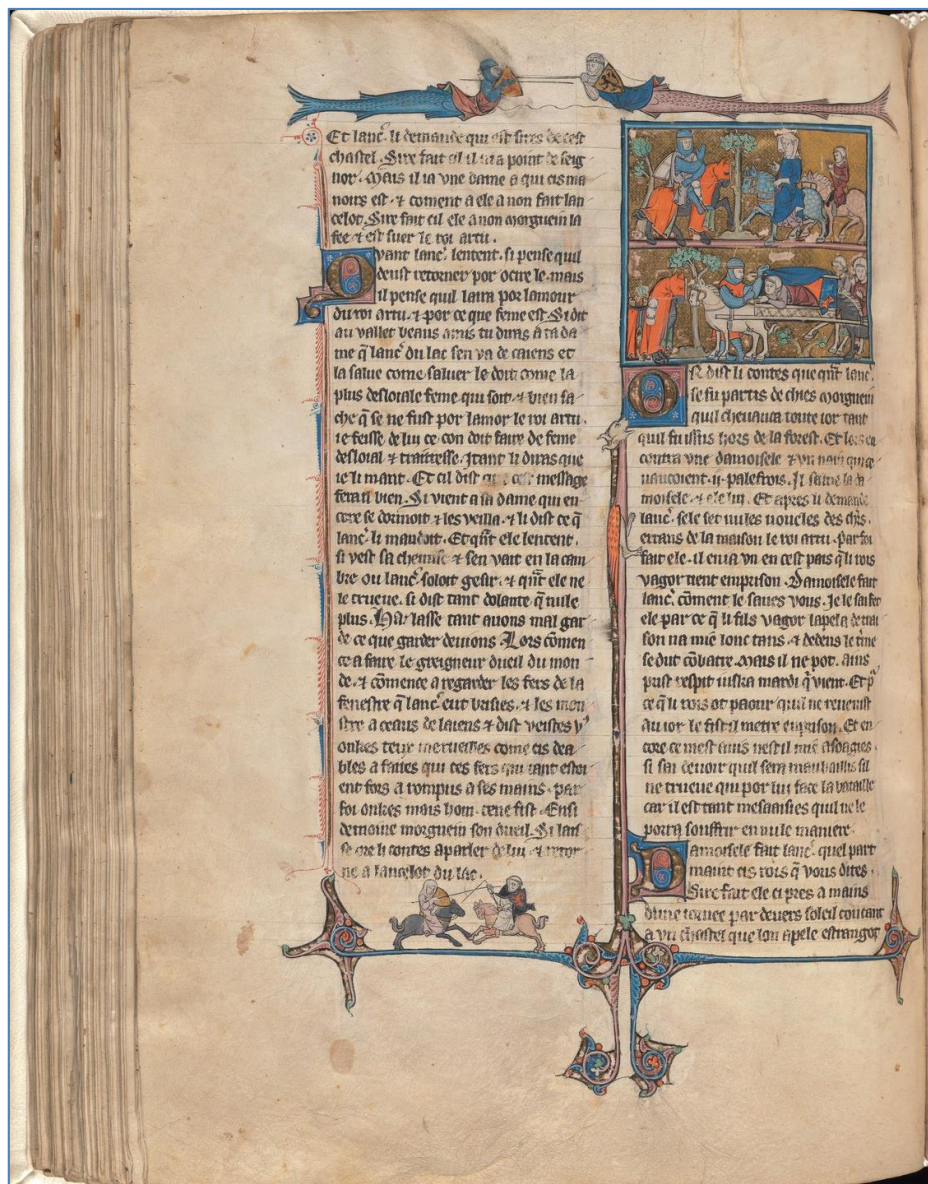 Et lancͨ. li demande qui est sires de cest
chastel. Sire fait cil il ni a point de seig
nor. Mais il ia vne dame a qui cis ma
noirs est. ⁊ coment a ele a non fait lan
celot. Sire fait cil ele a non morguein la
fee ⁊ est suer le roi artu.
Quant lancͨ. lentent. si pense quil
deust retorner por ocire le. mais
il pense quil laira por lamour
du roi artu. ⁊ por ce que feme est. Si dit
au vallet beaus amis tu diras a ta da
me q̄ lancͨ. du lac sen va de caiens et
la salue come saluer le doit come la
plus desloiale feme qui soit. ⁊ bien sa
che q̄ se ne fust por lamor le roi artu.
ie feisse de lui ce con doit faire de feme
desloial ⁊ traitresse. Itant li diras que
ie li mant. Et cil dist que cest message
fera il bien. Si vient a sa dame qui en
core se dormoit ⁊ les veilla. ⁊ li dist ce q̄
lancͨ. li mandoit. Et qn̄t ele lentent.
si vest sa chemise ⁊ sen vait en la cam
bre ou lancͨ. soloit gesir. ⁊ qn̄t ele ne
le trueue. si dist tant dolante q̄ nule
plus. Ha lasse tant auons mal gar
de ce que garder deuions. Lors cōmen
ce a faire le greigneur dueil du mon
de. ⁊ cōmence a regarder les fers de la
fenestre q̄ lancͨ. eut brisies. ⁊ les mon
stre a ceaus de laiens ⁊ dist veistes vͦ
onkes teux merueilles come cis dea
bles a faites qui ces fers qui tant estoi
ent fors a rompus a ses mains. par
foi onkes mais hom. ce ne fist. Ensi
demoine morguein son dueil. Si lais
se ore li contes a parler de lui. ⁊ retor
ne a lancelot du lac.
Or dist li contes que qn̄t lancͨ.
se fu partis de chies morguein
quil cheuauca toute ior tant
quil fu issus hors de la forest. Et lors en
contra vne damoisele ⁊ vn nain qui che
uaucoient .ii. palefrois. Il salue la da
moisele. ⁊ ele lui. Et apres li demande
lancͨ. sele set nules noueles des chr̄s.
errans de la maison le roi artu. par foi
fait ele. il en ia vn en cest pais q̄ li rois
vagor tient en prison. Damoisele fait
lancͨ. cōment le saues vous. Je le sai fet
ele par ce q̄ li fils vagor lapela de trai
son na mie lonc tans. ⁊ dedens le t̄me
se dut cōbatre. Mais il ne pot. ains
prist respit iuska mardi q̄ vient. Et pͬ
ce q̄ li rois ot paour quil ne reuenist
au ior le fist il metre en prison. Et en
core ce mest auis nest il mie asoagies.
si sai ce uoir quil sera maubaillis sil
ne trueue qui por lui face la bataille
car il est tant mesaaisies quil ne le
porra souffrir en nule maniere.
Damoisele fait lancͨ. quel part
maint cis rois q̄ vous dites.
Sire fait ele ci pres a mains
dune iornee par deuers soleil coucant
a vn chastel que lon apele estrangor